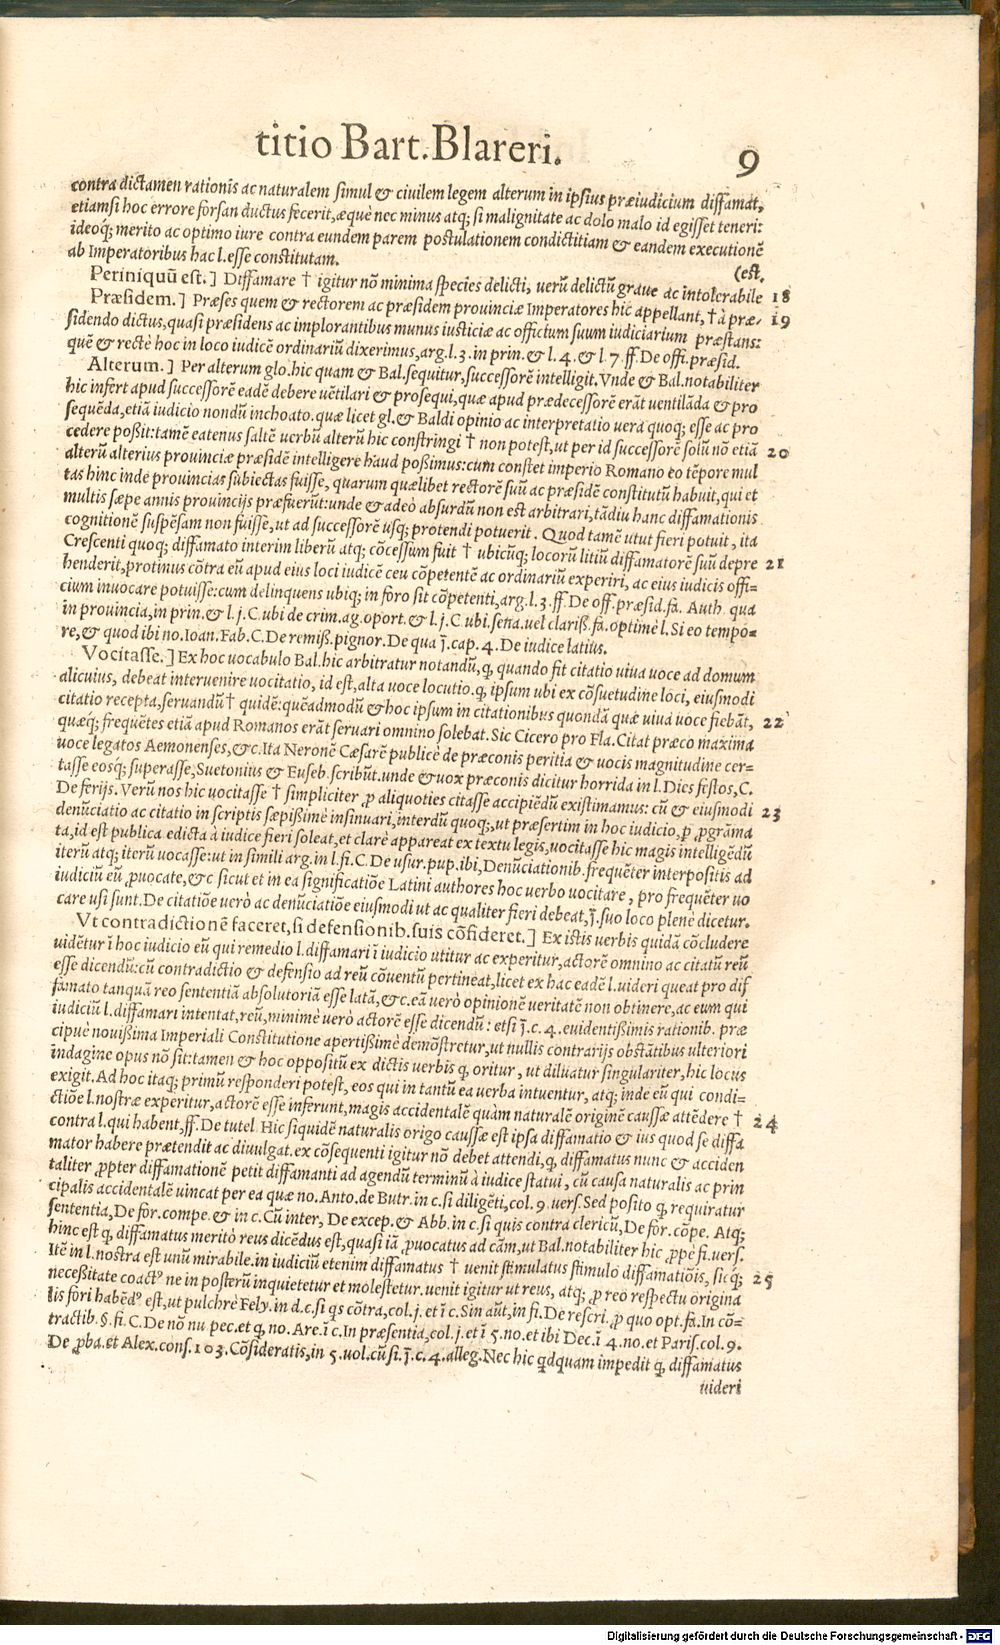 titio Bart. Blareri. 9
contra dictamen rationis ac naturalem simul & civilem legem alterum in ipsius præiudicium diffamat,
etiamsi hoc errore forsan ductus fecerit, æquè nec minus atq; si malignitate ac dolo malo id egisset teneri:
ideoq́; merito ac optimo iure contra eundem parem postulationem condictitiam & eandem executionē
ab Imperatoribus hac l. esse constitutam. (est.
Periniquū est.] Diffamare † igitur nō minima species delicti, uerū delictū graue ac intolerabile 18
Præsidem.] Præses quem & rectorem ac præsidem prouinciæ Imperatores hic appellant, † à præ- 19
sidendo dictus, quasi præsidens ac implorantibus munus iusticiæ ac officium suum iudiciarium præstans:
quē & rectè hoc in loco iudicē ordinariū dixerimus, arg. l. 3. in prin. & l. 4. & l. 7. ff. De offi. præsid.
Alterum.] Per alterum glo. hic quam & Bal. sequitur, successorē intelligit. Vnde & Bal. notabiliter
hic infert apud successorē eadē debere uētilari & prosequi, quæ apud prædecessorē erāt ventilāda & pro
sequēda, etiā iudicio nondū inchoato. quæ licet gl. & Baldi opinio ac interpretatio uera quoq; esse ac pro
cedere poßit: tamē eatenus saltē uerbū alterū hic constringi † non potest, ut per id successorē solū nō etiā 20
alterū alterius prouinciæ præsidē intelligere haud poßimus: cum constet imperio Romano eo tēpore mul
tas hinc inde prouincias subiectas fuisse, quarum quælibet rectorē suū ac præsidē constitutū habuit, qui et
multis sæpe annis prouincijs præfuerūt: unde & adeò absurdū non est arbitrari, tādiu hanc diffamationis
cognitionē suspēsam non fuisse, ut ad successorē usq; protendi potuerit. Quod tamē utut fieri potuit, ita
Crescenti quoq; diffamato interim liberū atq; cōcessum fuit † ubicūq; locorū litiū diffamatorē suū depre 21
henderit, protinus cōtra eū apud eius loci iudicē ceu cōpetentē ac ordinariū experiri, ac eius iudicis offi-
cium inuocare potuisse: cum delinquens ubiq; in foro sit cōpetenti, arg. l. 3. ff. De off. præsid. fa. Auth. qua
in prouincia, in prin. & l. j. C. ubi de crim. ag. oport. & l. j. C. ubi. sena. uel clariß. fa. optimè l. Si eo tempo-
re, & quod ibi no. Ioan. Fab. C. De remiß. pignor. De qua j̄. cap. 4. De iudice latius.
Vocitasse.] Ex hoc uocabulo Bal. hic arbitratur notandū, q, quando fit citatio uiua uoce ad domum
alicuius, debeat interuenire uocitatio, id est, alta uoce locutio. q, ipsum ubi ex cōsuetudine loci, eiusmodi
citatio recepta, seruandū † quidē: quēadmodū & hoc ipsum in citationibus quondā quæ uiua uoce fiebāt, 22
quæq; frequētes etiā apud Romanos erāt seruari omnino solebat. Sic Cicero pro Fla. Citat præco maxima
uoce legatos Aemonenses, &c. Ita Neronē Cæsarē publicè de præconis peritia & uocis magnitudine cer-
tasse eosq; superasse, Suetonius & Euseb. scribūt. unde & uox præconis dicitur horrida in l. Dies festos, C.
De ferijs. Verū nos hic uocitasse † simpliciter ꝓ aliquoties citasse accipiēdū existimamus: cū & eiusmodi 23
denūciatio ac citatio in scriptis sæpißimè insinuari, interdū quoq;, ut præsertim in hoc iudicio, ꝓ ꝓgrāma
ta, id est publica edicta à iudice fieri soleat, et clarè appareat ex textu legis, uocitasse hic magis intelligēdū
iterū atq; iterū uocasse: ut in simili arg. in l. fi. C. De usur. pup. ibi, Denūciationib. frequēter interpositis ad
iudiciū eū ꝓuocate, &c sicut et in ea significatiōe Latini authores hoc uerbo uocitare, pro frequēter uo
care usi sunt. De citatiōe uerò ac denūciatiōe eiusmodi ut ac qualiter fieri debeat, j̄. suo loco plenè dicetur.
Vt contradictionē faceret, si defensionib. suis cōfideret.] Ex istis uerbis quidā cōcludere
uidētur ī hoc iudicio eū qui remedio l. diffamari ī iudicio utitur ac experitur, actorē omnino ac citatū reū
esse dicendū: cū contradictio & defensio ad reū cōuentū pertineat, licet ex hac eadē l. uideri queat pro dif
famato tanquā reo sententiā absolutoriā esse latā, &c. eā uerò opinionē veritatē non obtinere, ac eum qui
iudiciū l. diffamari intentat, reū, minimè uerò actorē esse dicendū: etsi j̄. c. 4. euidentißimis rationib. præ
cipuè nouißima Imperiali Constitutione apertißimè demōstretur, ut nullis contrarijs obstātibus ulteriori
indagine opus nō sit: tamen & hoc oppositū ex dictis uerbis q, oritur, ut diluatur singulariter, hic locus
exigit. Ad hoc itaq; primū responderi potest, eos qui in tantū ea uerba intuentur, atq; inde eū qui condi-
ctiōe l. nostræ experitur, actorē esse inferunt, magis accidentalē quàm naturalē originē caussæ attēdere † 24
contra l. qui habent, ff. De tutel. Hic siquidē naturalis origo caussæ est ipsa diffamatio & ius quod se diffa
mator habere prætendit ac diuulgat. ex cōsequenti igitur nō debet attendi, q, diffamatus nunc & acciden
taliter ꝓpter diffamationē petit diffamanti ad agendū terminū à iudice statui, cū causa naturalis ac prin
cipalis accidentalē uincat per ea quæ no. Anto. de Butr. in c. si diligēti, col. 9. vers. Sed posito q, requiratur
sententia, De for. compe. & in c. Cū inter, De excep. & Abb. in c. si quis contra clericū, De for. cōpe. Atq;
hinc est q, diffamatus meritò reus dicēdus est, quasi iā ꝓuocatus ad cām, ut Bal. notabiliter hic ꝓpè fi. vers.
Itē in l. nostra est unū mirabile. in iudiciū etenim diffamatus † uenit stimulatus stimulo diffamatiōis, sicq́; 25
neceßitate coactꝰ ne in posterū inquietetur et molestetur. uenit igitur ut reus, atq; ꝓ reo respectu origina
lis fori habēdꝰ est, ut pulchrè Fely. in d. c. si qs cōtra, col. j. et ī c. Sin aūt, in fi. De rescri. ꝓ quo opt. fa. In cō-
tractib. §. fi. C. De nō nu pec. et q, no. Are. ī c. In præsentia, col. j. et ī 5. no. et ibi Dec. ī 4. no. et Paris. col. 9.
De ꝓba. et Alex. cons. 103. Cōsideratis, in 5. uol. cū si. j̄. c. 4. alleg. Nec hic qdquam impedit q, diffamatus
uideri
Digitalisierung gefördert durch die Deutsche Forschungsgemeinschaft - DFG